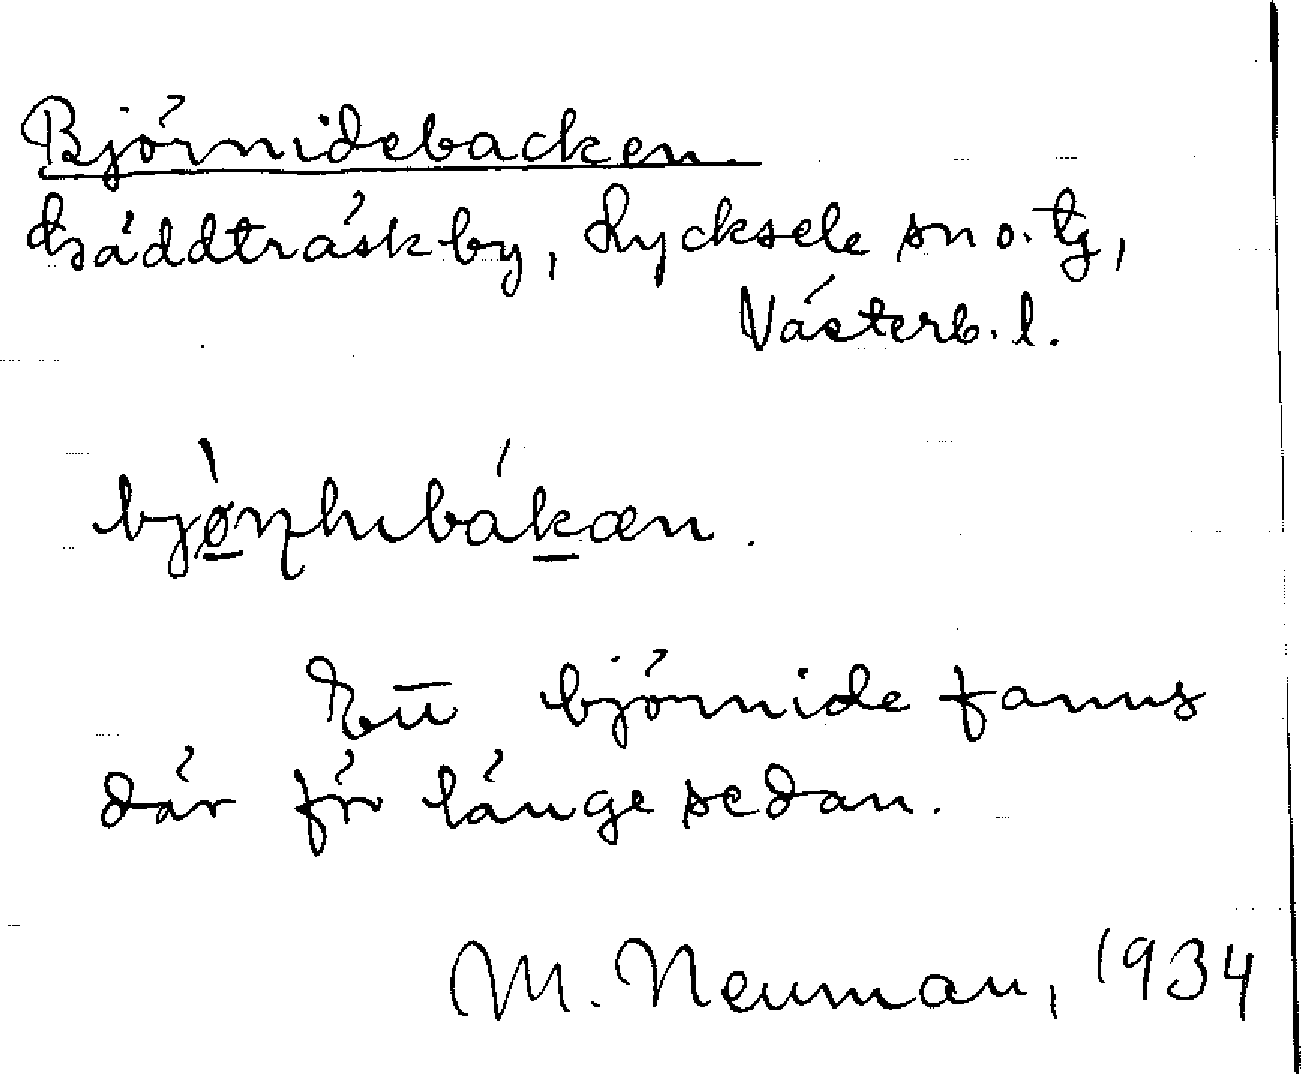 Björnidebacken.
Bäddträsk by, Lycksele sn o. tg,
Västerb. l.
Ett björnide fanns
där för länge sedan.
M. Neuman, 1934